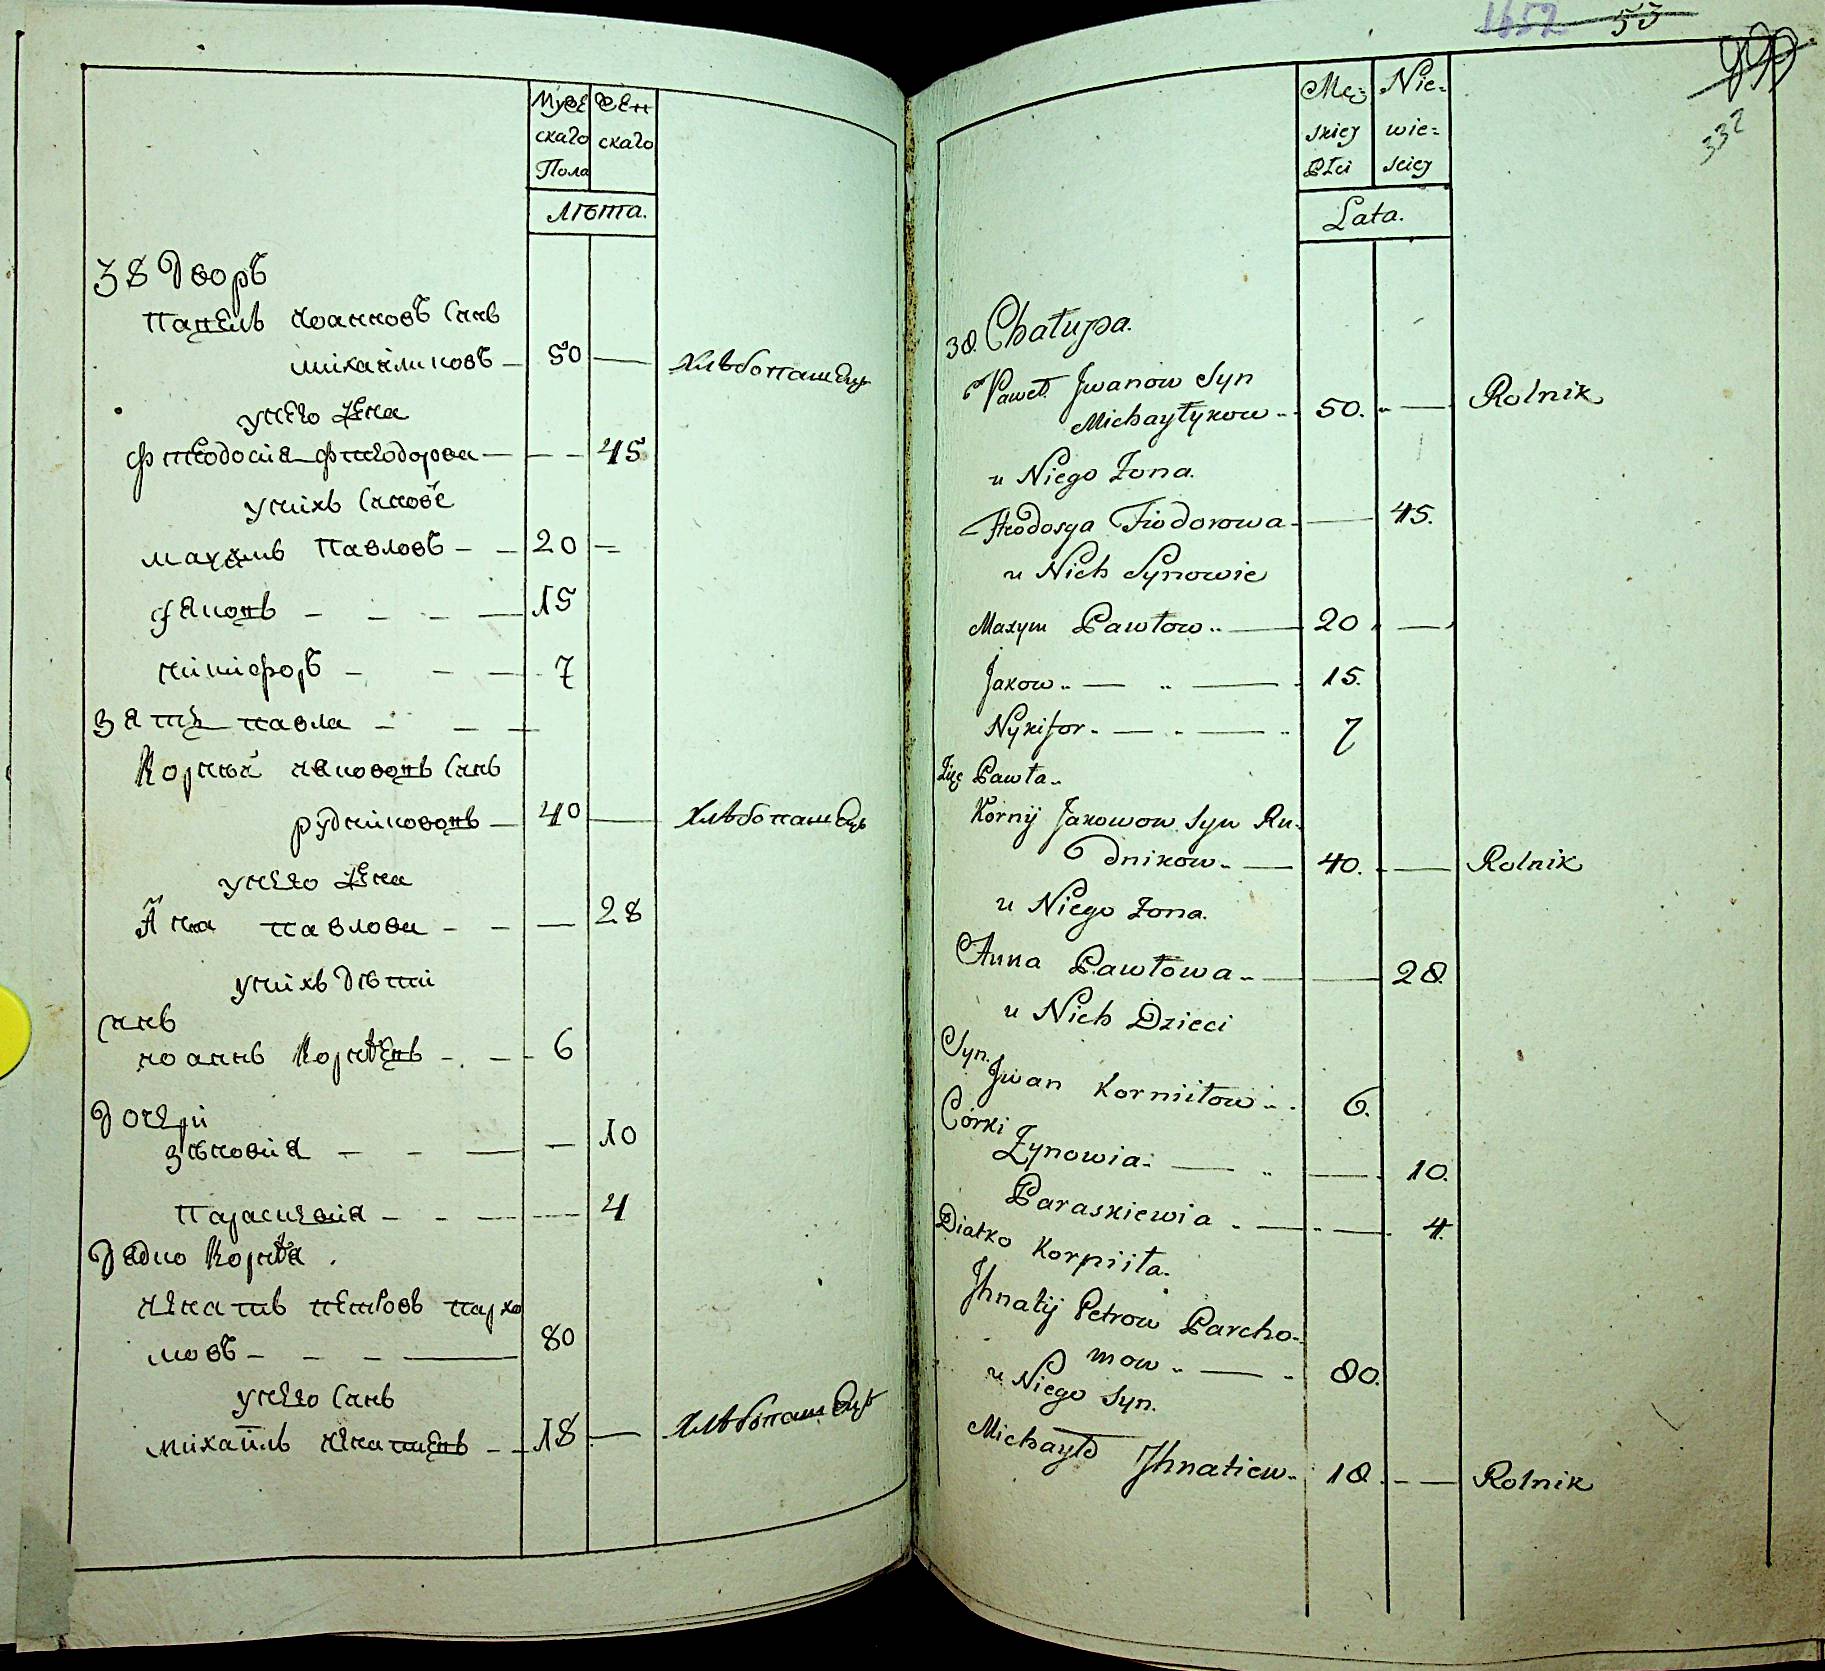 Муже Жен
скаго скаго
Пола
Лѣта.
38 Дворъ
Павелъ Иоанновъ Синъ
михайликовъ — 50 — Хлѣбопашецъ
унего жена
Фтеодосия Фтеодорова — — — 45
унихъ Синове
максимъ Павловъ — — 20 —
яковъ — — — — 15
никифоръ — — — 7
зять павла — — —
Корнѣй якововъ Синъ
рудниковъ — 40 — Хлѣбопашецъ
унего жена
Анна павлова — — — 28
унихъ дѣти
Синъ
иоаннъ Корнѣевъ — — — 6
Дочери
зѣновия — — — — 10
Параскевия — — — — 4
Дядко Корнѣя .
Игнатий петровъ пархо
мовъ — — — — 80
унего Синъ
михаилъ Игнатиевъ — — 18 — Хлѣбопашецъ
1652 53
332
Męz= Nie=
skiej wie=
Płci sciej
Lata.
38. Chałupa.
Paweł Jwanow Syn
Michayłykow .. 50. .. — Rolnik
u Niego Zona.
Fteodosya Fiodorowa — — 45.
u Nich Synowie
Maxym Pawłow .. — 20 . —
Jakow .. — .. — . 15.
Nykifor . — .. — .. 7
Zięc Pawła ..
Kornij Jakowow Syn Ru=
dnikow .. — 40. . — Rolnik
u Niego Zona.
Anna Pawłowa .. — — 28.
u Nich Dzieci
Syn.
Jwan Korniiłow .. . 6.
Córki
Zynowia .. — .. — . 10.
Paraskiewia . — .. — . 4.
Diatko Korniiła.
Jhnatij Petrow Parcho=
mow .. — .. 80.
u Niego Syn.
Michayło Jhnatiew .. 18. .. — Rolnik